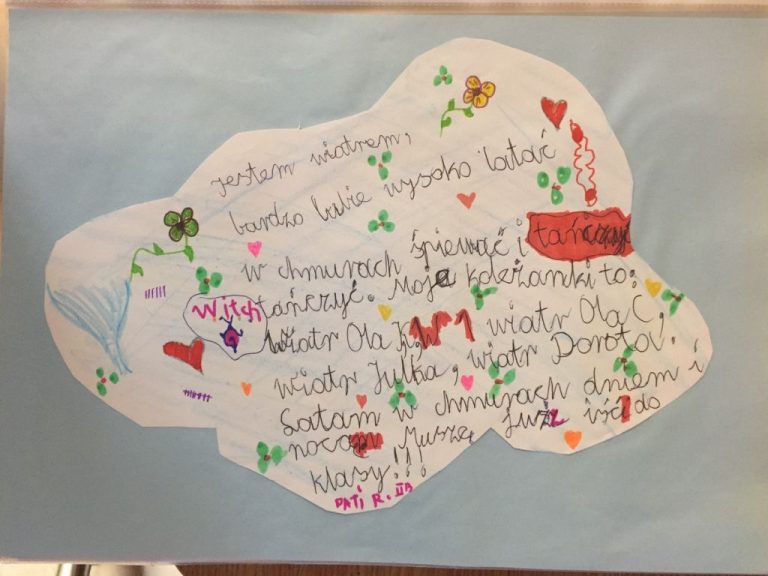 Jestem wiatrem,
bardzo lubie wysoko latać
w chmurach śpiewać i
Witch
tańczyć. Moje koleżanki to:
wiatr Ola K. wiatr Ola C,
wiatr Julka, wiatr Dorota.
Latam w chmurach dniem i
nocą Muszę już iść do
klasy!!!
PATI R. IIB